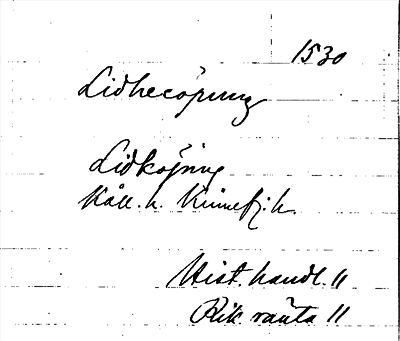 1530
Lidhecöpung
Lidköping
Kåll. h. Kinnef. h.
Hist. handl. 11
Rik. ränta 11